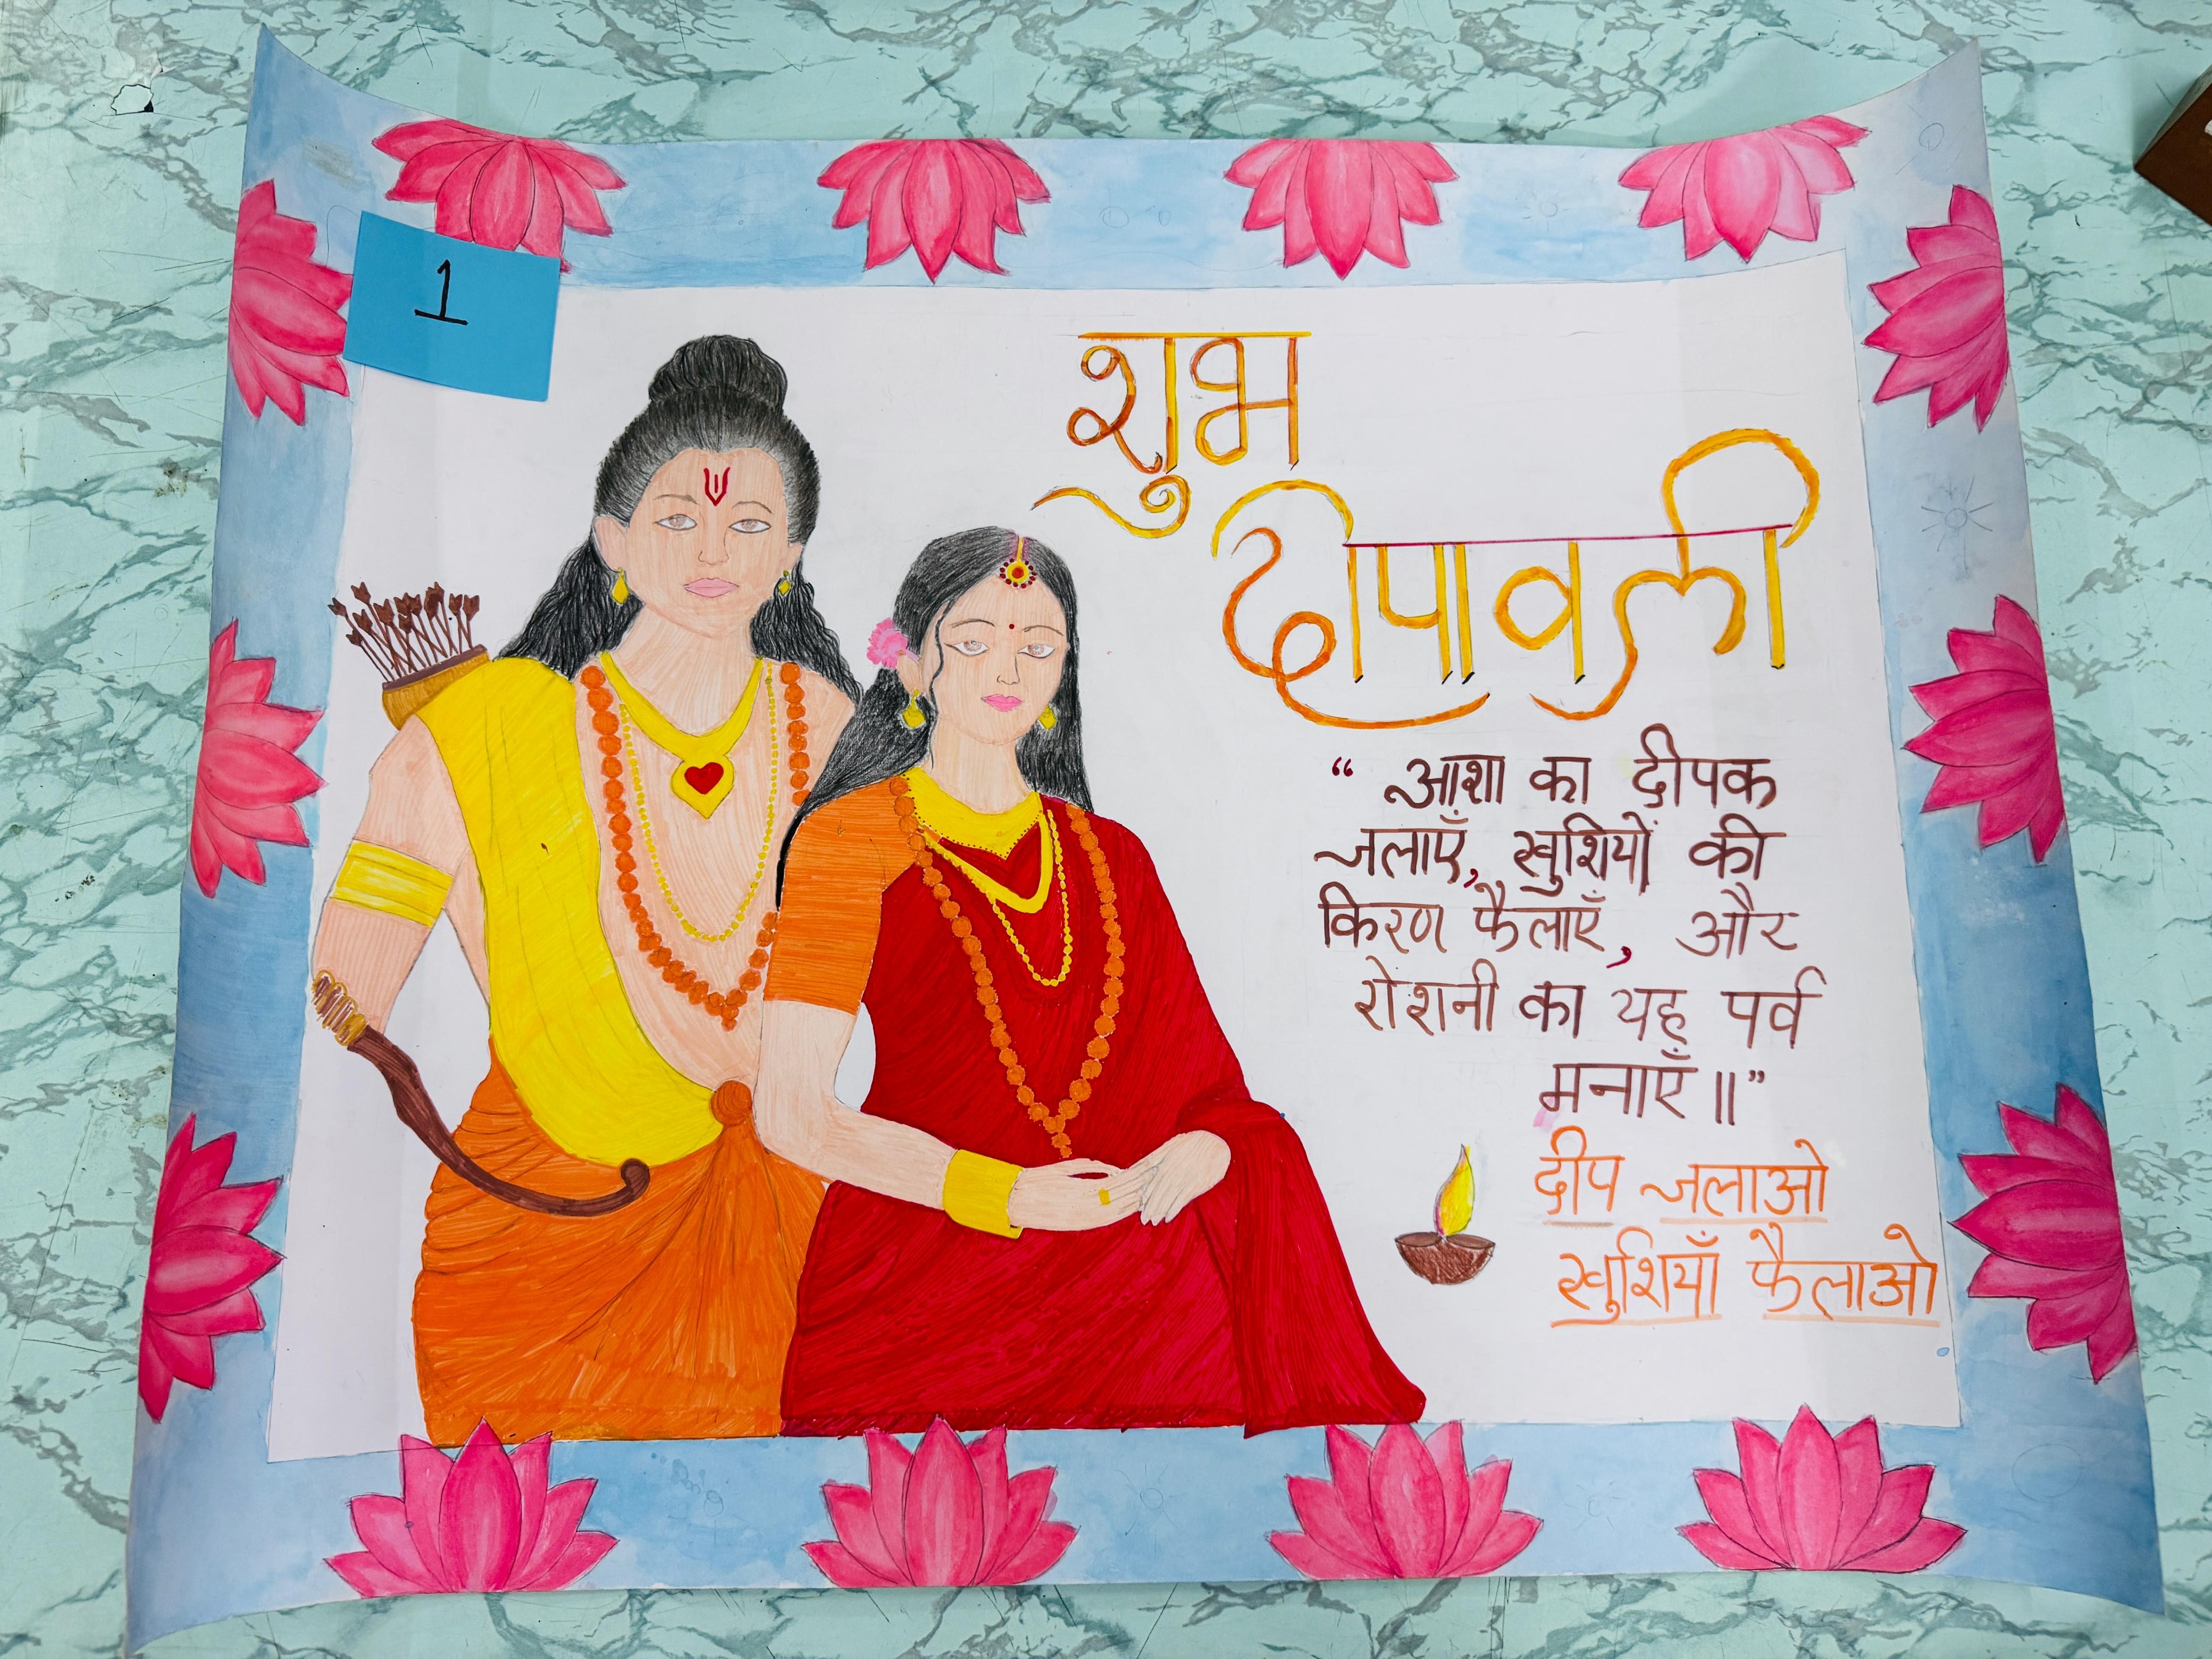 1
शुभ
दीपावली
“ आशा का दीपक
जलाएँ, खुशियों की
किरण फैलाएँ, और
रोशनी का यह पर्व
मनाएँ ॥”
दीप जलाओ
खुशियाँ फैलाओ